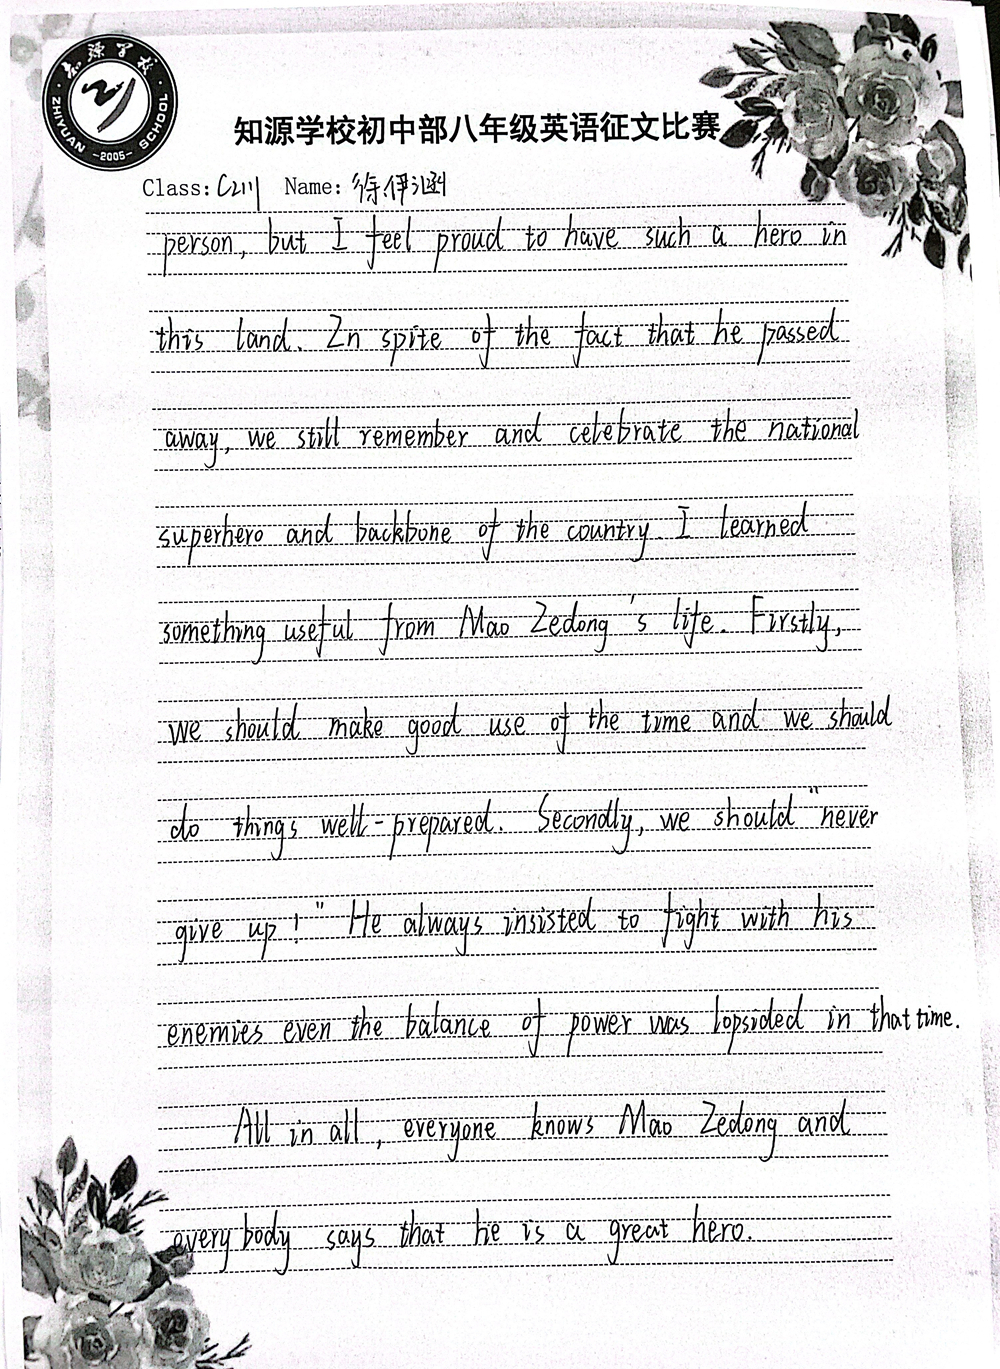 知源学校
ZHIYUAN SCHOOL
-2005-
知源学校初中部八年级英语征文比赛
Class: C211 Name: 徐伊涵
person, but I feel proud to have such a hero in
this land. In spite of the fact that he passed
away, we still remember and celebrate the national
superhero and backbone of the country. I learned
something useful from Mao Zedong's life. Firstly,
we should make good use of the time and we should
do things well-prepared. Secondly, we should "never
give up!" He always insisted to fight with his
enemies even the balance of power was lopsided in that time.
All in all, everyone knows Mao Zedong and
everybody says that he is a great hero.